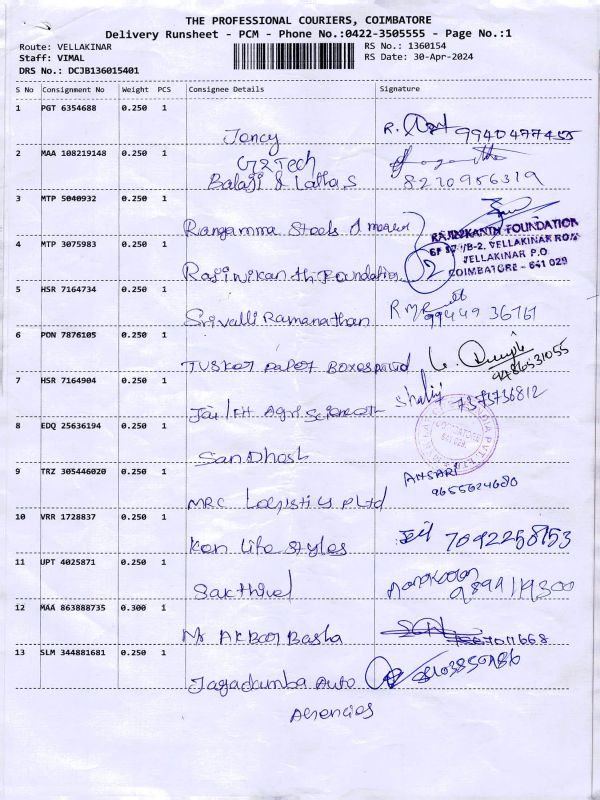 THE PROFESSIONAL COURIERS, COIMBATORE
Delivery Runsheet - PCM - Phone No.:0422-3505555 - Page No.:1
Route: VELLAKINAR
RS No.: 1360154
Staff: VIMAL
RS Date: 30-Apr-2024
DRS No.: DCJB136015401
S No Consignment No Weight PCS Consignee Details Signature
1 PGT 6354688 0.250 1
Jency R. 9940477455
2 MAA 108219148 0.250 1
GR Tech
Balaji & Latha S 8220956319
3 MTP 5040932 0.250 1
Rangamma Steels
RAJINIKANTH FOUNDATION
VELLAKINAR
VELLAKINAR P.O.
COIMBATORE - 641 029
4 MTP 3075983 0.250 1
Rajinikanth Foundation
5 HSR 7164734 0.250 1
Srivalli Ramanathan 99449 36761
6 PON 7876105 0.250 1
Tusker Paper Boxes 9486531055
7 HSR 7164904 0.250 1
Agri 7373736812
8 EDQ 25636194 0.250 1
Sandhosh
9 TRZ 305446020 0.250 1
MRC Logistics P Ltd ANSARI
9655624680
10 VRR 1728837 0.250 1
Ken Life Styles 7092258153
11 UPT 4025871 0.250 1
Sakthivel
12 MAA 863888735 0.300 1
Mr Akbar Basha
13 SLM 344881681 0.250 1
Jagadamba Auto
Agencies